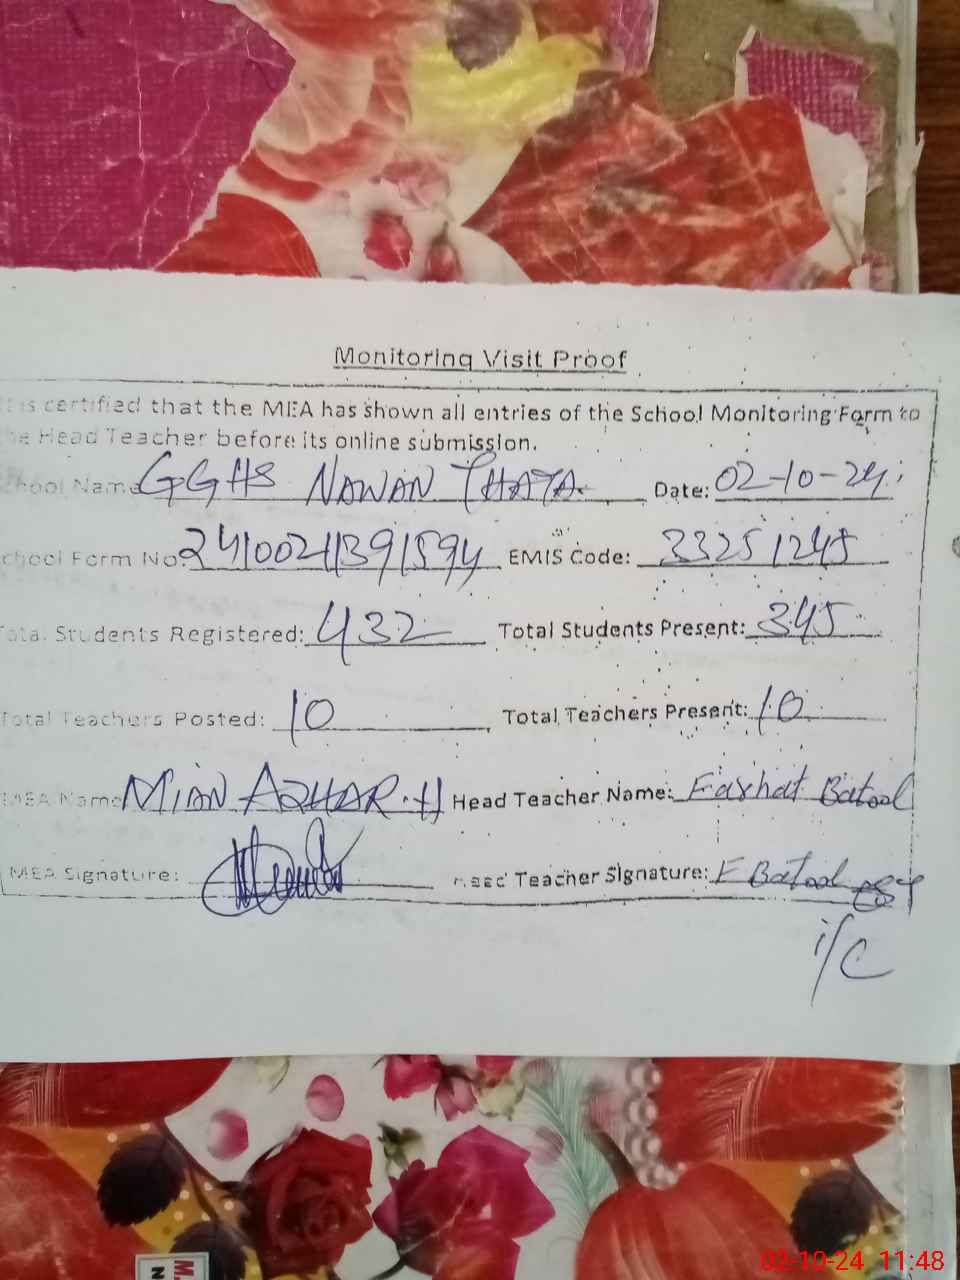 Monitoring Visit Proof
It is certified that the MEA has shown all entries of the School Monitoring Form to
the Head Teacher before its online submission.
School Name GGHS NAWAN THATA. Date: 02-10-24
School Form No: 24100211391594 EMIS Code: 33251245
Total Students Registered: 432 Total Students Present: 345
Total Teachers Posted: 10 Total Teachers Present: 10
MEA Name MIAN AZHAR.H Head Teacher Name: Farhat Batool
MEA Signature: Head Teacher Signature: F Batool
i/C
M.
N
02-10-24 11:48